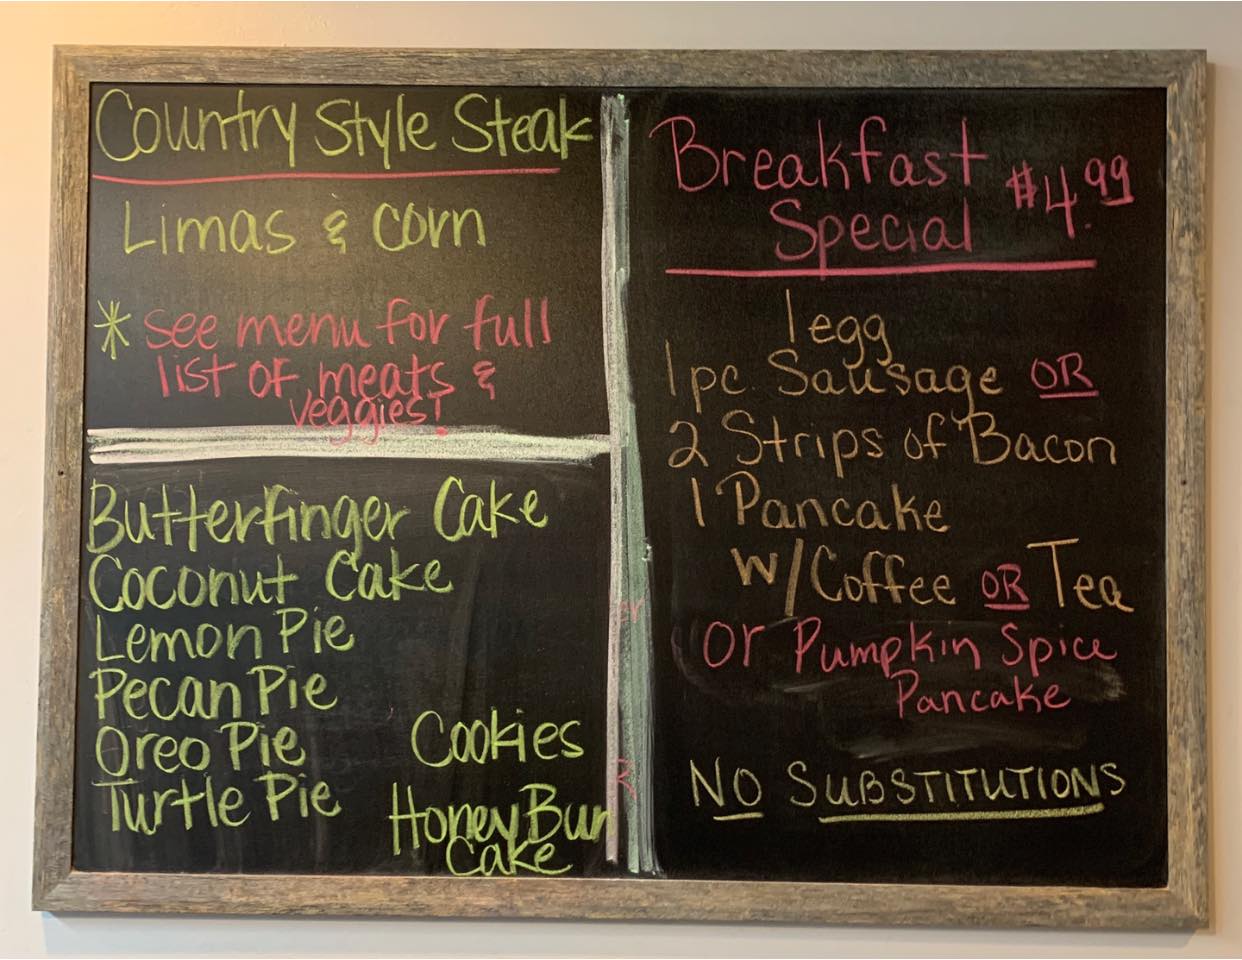 Country Style Steak
Limas & corn
* see menu for full
list of meats &
veggies!
Butterfinger Cake
Coconut Cake
Lemon Pie
Pecan Pie
Oreo Pie
Turtle Pie
Cookies
Honey Bun
Cake
Breakfast
Special $4.99
1 egg
1 pc. Sausage OR
2 Strips of Bacon
1 Pancake
w/Coffee OR Tea
or Pumpkin Spice
Pancake
NO SUBSTITUTIONS